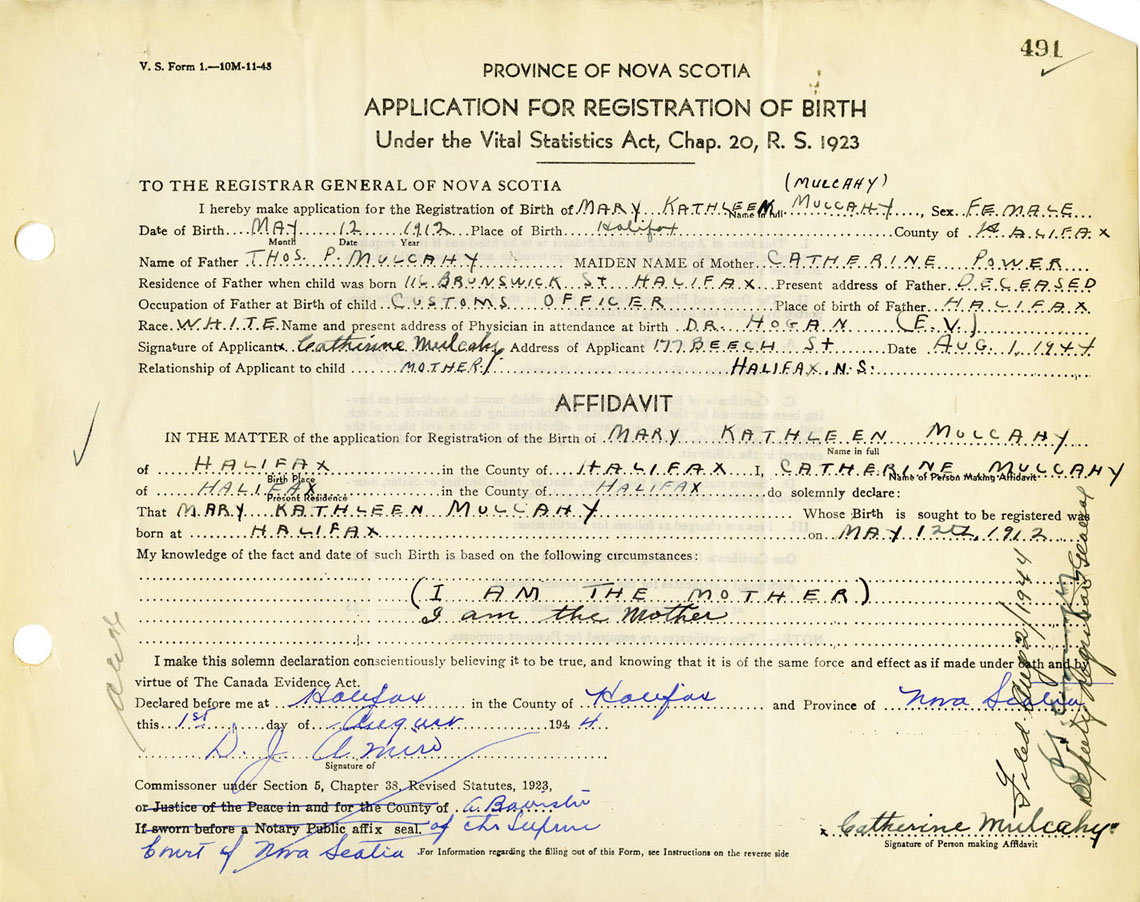 491
V. S. Form 1.—10M-11-43
PROVINCE OF NOVA SCOTIA
APPLICATION FOR REGISTRATION OF BIRTH
Under the Vital Statistics Act, Chap. 20, R. S. 1923
TO THE REGISTRAR GENERAL OF NOVA SCOTIA (MULCAHY)
I hereby make application for the Registration of Birth of MARY KATHLEEN MULCAHY, Sex FEMALE
Name in full
Date of Birth MAY 12 1912 Place of Birth Halifax County of HALIFAX
Month Date Year
Name of Father THOS. P. MULCAHY MAIDEN NAME of Mother CATHERINE POWER
Residence of Father when child was born 116 BRUNSWICK St HALIFAX Present address of Father DECEASED
Occupation of Father at Birth of child CUSTOMS OFFICER Place of birth of Father HALIFAX
Race WHITE Name and present address of Physician in attendance at birth DR. HOGAN (E.V.)
Signature of Applicant x Catherine Mulcahy Address of Applicant 177 BEECH St Date AUG. 1, 1944
Relationship of Applicant to child MOTHER HALIFAX. N.S.
AFFIDAVIT
IN THE MATTER of the application for Registration of the Birth of MARY KATHLEEN MULCAHY
Name in full
of HALIFAX in the County of HALIFAX I, CATHERINE MULCAHY
Birth Place Name of Person Making Affidavit
of HALIFAX in the County of HALIFAX do solemnly declare:
Present Residence
That MARY KATHLEEN MULCAHY Whose Birth is sought to be registered was
born at HALIFAX on MAY 12th, 1912
My knowledge of the fact and date of such Birth is based on the following circumstances:
(I AM THE MOTHER)
I am the Mother
I make this solemn declaration conscientiously believing it to be true, and knowing that it is of the same force and effect as if made under oath and by
virtue of The Canada Evidence Act.
Declared before me at Halifax in the County of Halifax and Province of Nova Scotia
this 1st day of August 1944
D. J. Amiro
Signature of
Commissoner under Section 5, Chapter 38, Revised Statutes, 1923,
or Justice of the Peace in and for the County of A Barrister
If sworn before a Notary Public affix seal. of the Supreme
Court of Nova Scotia For Information regarding the filling out of this Form, see Instructions on the reverse side
x Catherine Mulcahy
Signature of Person making Affidavit
Filed Aug 2/1944
Deputy Registrar General